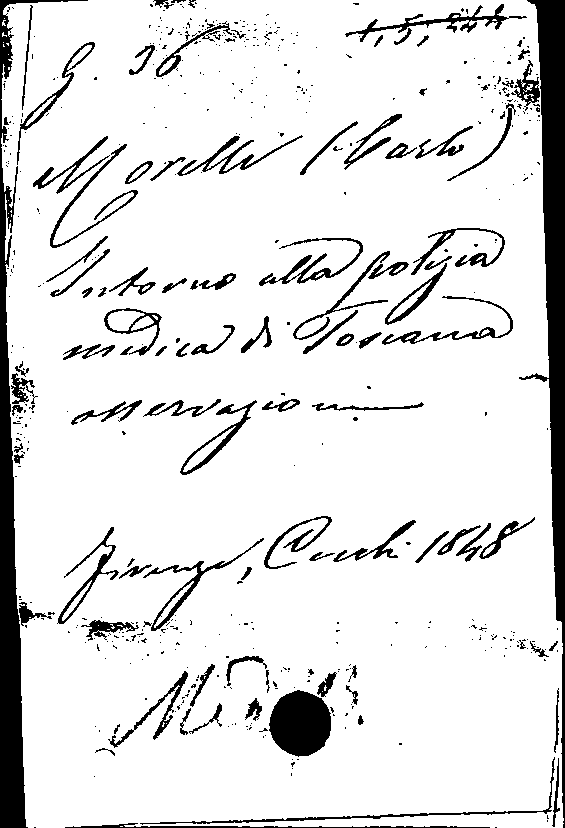 G. 36
1, 5, 244
Morelli (Carlo)
Intorno alla polizia
medica di Toscana
osservazioni
Firenze, Cecchi 1848